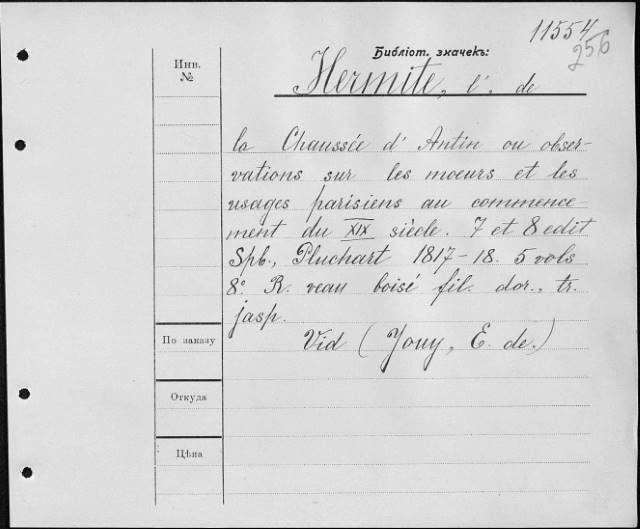 11554
256
Библiот. значекъ:
Инв.
№
Hermite, l'. de
la Chaussée d'Antin ou obser-
vations sur les moeurs et les
usages parisiens au commence-
ment du XIX siècle. 7 et 8 edit
Spb., Pluchart 1817-18. 5 vols
8° R. veau boisé fil. dor., tr.
jasp.
По заказу
Vid (Jouy, E. de.)
Откуда
Цѣна